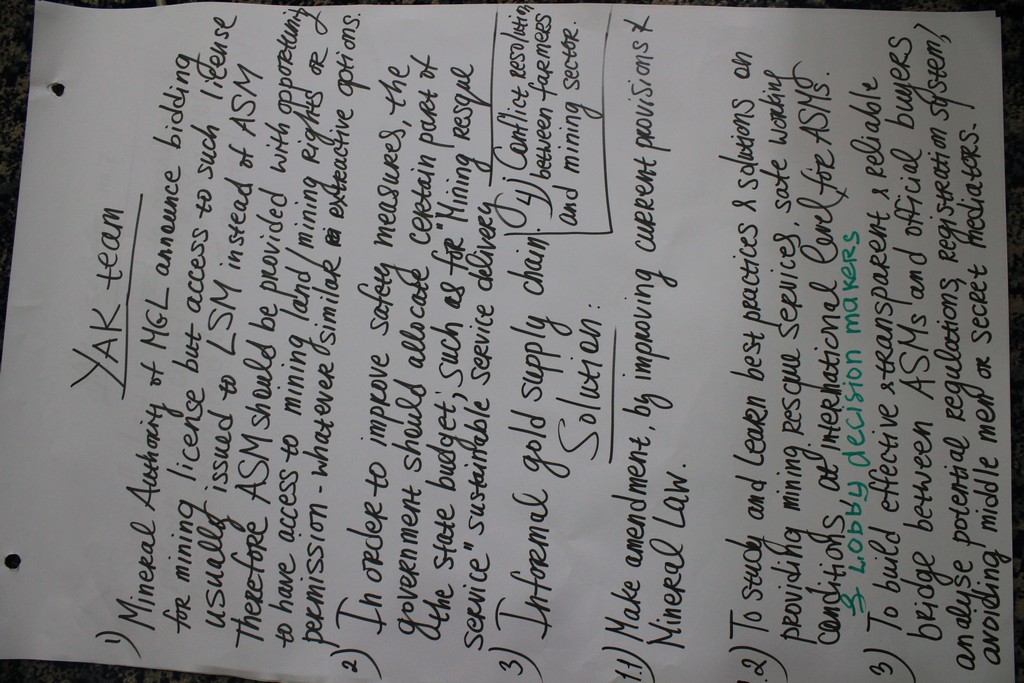 YAK team
1) Mineral Authoriy of MGL announce bidding
for mining license but access to such license
usually issued to LSM instead of ASM
Therefore ASM should be provided with opportuniy
to have access to mining land/mining rights or
permission - whatever similar extractive options.
2) In order to improve safety measures, the
government should allocate certain part of
the state budget, such as for "Mining resque
service" sustainable service delivery
3) Informal gold supply chain.
4) Conflict resolution
between farmers
and mining sector.
Solution:
1.1) Make amendment, by improving current provisions
Mineral Law.
1.2) To study and learn best practices & solutions on
providing mining resque services, safe working
conditions, at international level for ASMs.
& Lobby decision makers
3) To build effective & transparent & reliable
bridge between ASMs and official buyers
analyse potential regulations, registration system,
avoiding middle men or secret mediators.